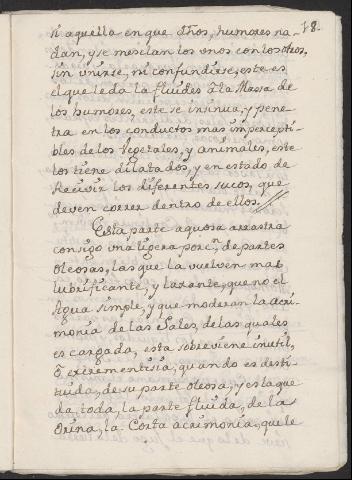 18.
ni aquella en que dhos, humores na-
dan, y se mesclan los unos con los otros,
sin unirse, ni confundirse, este es
el que le da la fluides â la Massa de
los humores, este se insinua, y pene-
tra en los conductos mas impercepti-
bles de los Vegetales, y animales, este
los tiene dilatados, y en estado de
Recivir los diferentes sucos, que
deven correr dentro de ellos.
Esta parte aquosa arrastra
consigo una ligera porcn. de partes
oleosas, las que la vuelven mas
lubrificante, y laxante, que no el
Agua simple, y que moderan la acri-
monia de las Sales, de las quales
es cargada, esta sobreviene inutil,
ô excrementisia, quando es desti-
tuida, de su parte oleosa, y es la que
da, toda, la parte fluida, de la
orina, la Corta acrimonia, que le